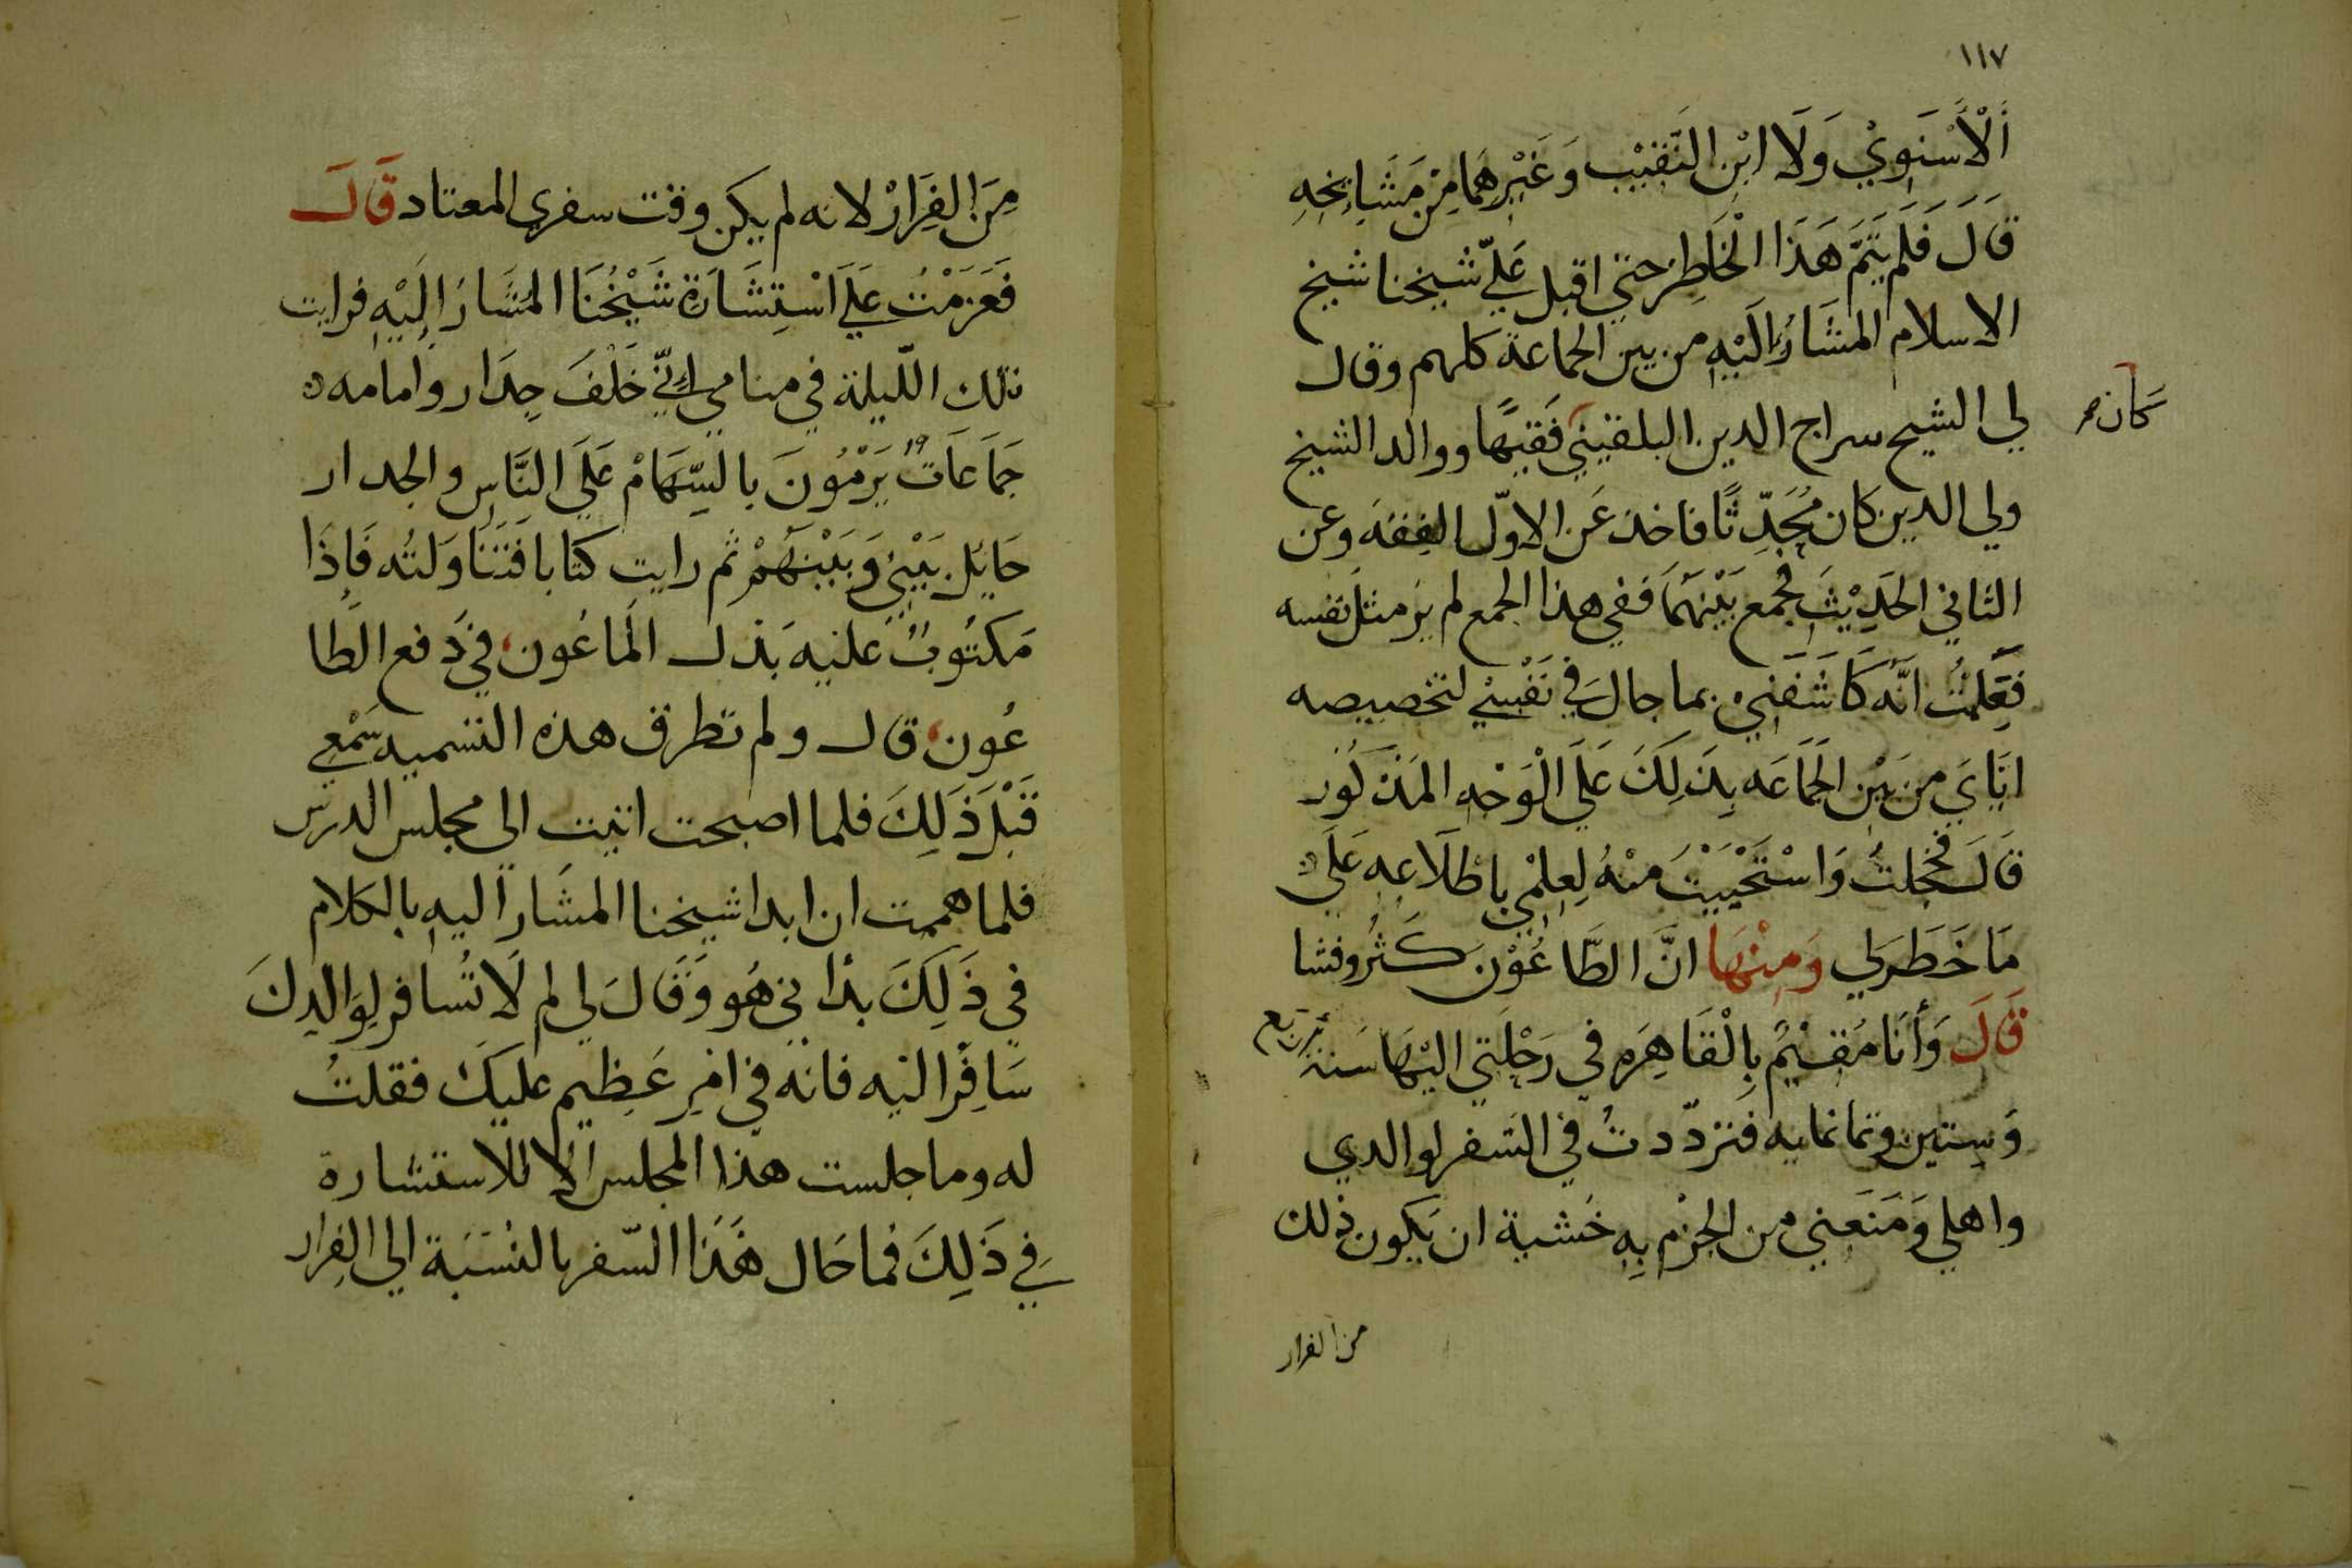 ١١٧
اَلْأَسْنَوِيْ وَلَا ابْنِ النَّقِيْب وَغَيْرِهِمَا مِنْ مَشَايِخِهِ
قَالَ فَلَمْ يَتِمَّ هَذَا الْخَاطِرْ حتي اقبل عَلَيَّ شيخنا شيخ
الاسلام المشَارُ الَيْهِ من بين الجماعة كلهم وقال
لي الشيخ سراج الدين البلقيني فَقيهًا ووالد الشيخ
كان صح
ولي الدين كان مُحَدِّثًا فاخذ عَن الاوّل الفِقهَ وعن
الثاني الحَدِيْثَ فجمع بَيْنَهُمَا ففي هذا الجمع لم يَرَ مثلَ نفسه
فَعَلِمْتُ انَّه كَاشَفَنِيْ بما جال في نَفْسِيْ لتخصيصه
ايَّايَ من بَيْنِ الجَمَاعَه بِذَلِكَ عَلَى الْوَجْهِ المَذْكُور
قَالَ فخجلتُ وَاسْتَحْيَيْتُ مِنْهُ لِعِلْمِي باطْلَاعِهِ عَلَى
مَا خَطَرَ لي وَمِنْهَا انَّ الطَّاعُوْنَ كَثُرَ وفشا
قَالَ وَأَنَا مُقِيْمٌ بِالْقَاهِرَه في رَحْلَتِي اليْهَا سَنَة اربع
وَسِتين وثمانمايه فتردّدتُ في السَفر لوالدي
واهلي وَمَنَعَني من الجزْم بِهِ خَشية ان يَكون ذلك
من الفرار
مِنَ الفِرَارْ لانه لم يكن وقت سفري المعتاد قَالَ
فَعَزَمْتُ عَلَى اسْتِشَارَةِ شَيْخُنَا المُشَارُ الَيْهِ فرايت
تلك اللّيلة في منامي انيّ خَلْفَ جِدَار وامامه
جَمَاعَاتٌ يَرْمُونَ بالسِّهَامْ عَلَى النَّاسِ والجدار
حَايِل بَيْنِيْ وَبَيْنَهُمْ ثم رايت كتابا فَتَنَاوَلتُه فَاِذَا
مَكتُوبٌ عليه بَذل المَاعُون في دَفع الطَّا
عُون قال ولم تطرق هذه التسميه سَمْعِي
قَبْلَ ذَلِكَ فلما اصبحت اتيت الى مجلس الدرس
فلما هممت ان ابدا شيخنا المشَار اليهِ بالكلام
في ذَلِكَ بدأني هُو وَقَالَ لي لم لَا تُسافر لِوَالِدِكَ
سَافِرْ اليه فانه في امْرٍ عَظِيم عليكَ فقلتُ
له وما جلست هذا المجلس الا للاستشارة
في ذَلِكَ فما حَال هَذَا السّفر بالنسْبَة الي الفِرار